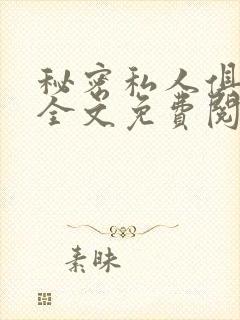 秘密私人俱
全文免費閱
素昧